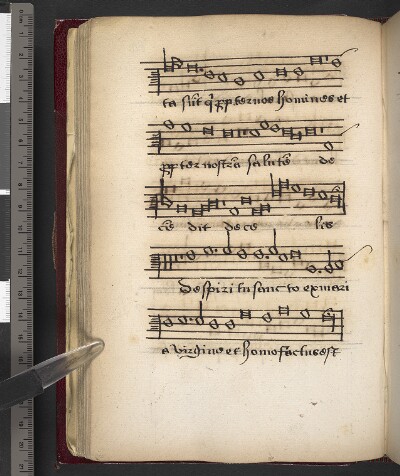 ta sūt q̄ ꝓpter nos homines et
ꝓpter nostrā salutē de
cē dit de ce lis
De spiri tu sanc to ex mari
a virgine et homo factus est